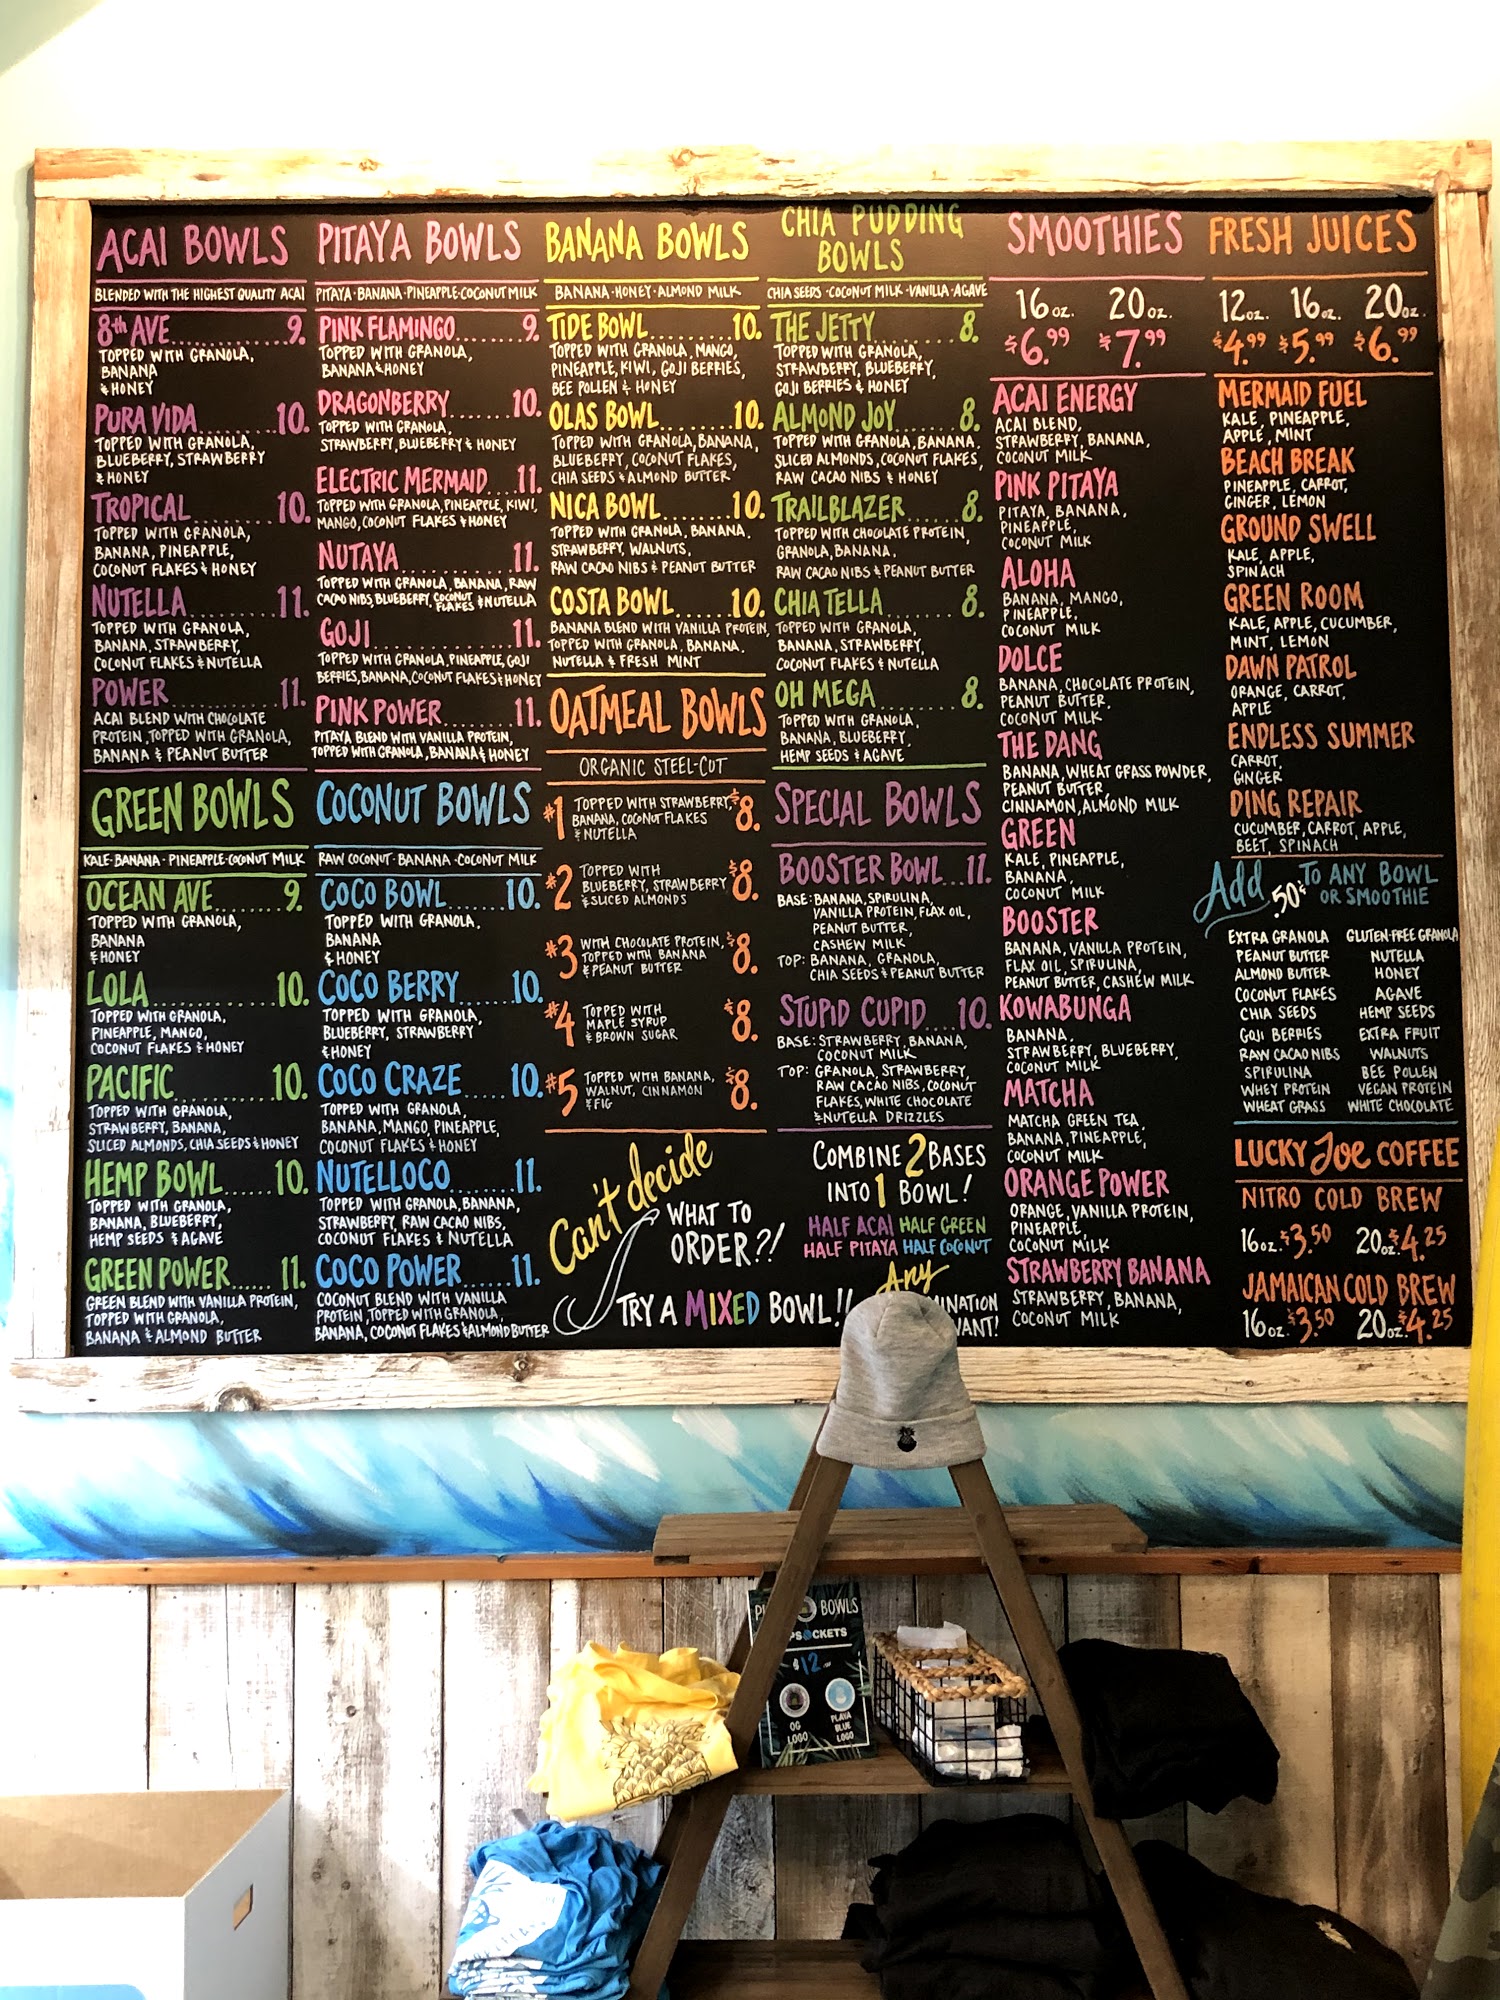 ACAI BOWLS
BLENDED WITH THE HIGHEST QUALITY ACAI
8th AVE........9.
TOPPED WITH GRANOLA,
BANANA
& HONEY
PURA VIDA........10.
TOPPED WITH GRANOLA,
BLUEBERRY, STRAWBERRY
& HONEY
TROPICAL........10.
TOPPED WITH GRANOLA,
BANANA, PINEAPPLE,
COCONUT FLAKES & HONEY
NUTELLA........11.
TOPPED WITH GRANOLA,
BANANA, STRAWBERRY,
COCONUT FLAKES & NUTELLA
POWER........11.
ACAI BLEND WITH CHOCOLATE
PROTEIN, TOPPED WITH GRANOLA,
BANANA & PEANUT BUTTER
GREEN BOWLS
KALE·BANANA·PINEAPPLE·COCONUT MILK
OCEAN AVE........9.
TOPPED WITH GRANOLA,
BANANA
& HONEY
LOLA........10.
TOPPED WITH GRANOLA,
PINEAPPLE, MANGO,
COCONUT FLAKES & HONEY
PACIFIC........10.
TOPPED WITH GRANOLA,
STRAWBERRY, BANANA,
SLICED ALMONDS, CHIA SEEDS & HONEY
HEMP BOWL......10.
TOPPED WITH GRANOLA,
BANANA, BLUEBERRY,
HEMP SEEDS & AGAVE
GREEN POWER......11.
GREEN BLEND WITH VANILLA PROTEIN,
TOPPED WITH GRANOLA,
BANANA & ALMOND BUTTER
PITAYA BOWLS
PITAYA·BANANA·PINEAPPLE·COCONUT MILK
PINK FLAMINGO........9.
TOPPED WITH GRANOLA,
BANANA & HONEY
DRAGONBERRY.......10.
TOPPED WITH GRANOLA,
STRAWBERRY, BLUEBERRY & HONEY
ELECTRIC MERMAID....11.
TOPPED WITH GRANOLA, PINEAPPLE, KIWI,
MANGO, COCONUT FLAKES & HONEY
NUTAYA........11.
TOPPED WITH GRANOLA, BANANA, RAW
CACAO NIBS, BLUEBERRY, COCONUT FLAKES & NUTELLA
GOJI........11.
TOPPED WITH GRANOLA, PINEAPPLE, GOJI
BERRIES, BANANA, COCONUT FLAKES & HONEY
PINK POWER........11.
PITAYA BLEND WITH VANILLA PROTEIN,
TOPPED WITH GRANOLA, BANANA & HONEY
COCONUT BOWLS
RAW COCONUT·BANANA·COCONUT MILK
COCO BOWL........10.
TOPPED WITH GRANOLA,
BANANA
& HONEY
COCO BERRY......10.
TOPPED WITH GRANOLA,
BLUEBERRY, STRAWBERRY
& HONEY
COCO CRAZE......10.
TOPPED WITH GRANOLA,
BANANA, MANGO, PINEAPPLE,
COCONUT FLAKES & HONEY
NUTELLOCO.......11.
TOPPED WITH GRANOLA, BANANA,
STRAWBERRY, RAW CACAO NIBS,
COCONUT FLAKES & NUTELLA
COCO POWER......11.
COCONUT BLEND WITH VANILLA
PROTEIN, TOPPED WITH GRANOLA,
BANANA, COCONUT FLAKES & ALMOND BUTTER
BANANA BOWLS
BANANA·HONEY·ALMOND MILK
TIDE BOWL.........10.
TOPPED WITH GRANOLA, MANGO,
PINEAPPLE, KIWI, GOJI BERRIES,
BEE POLLEN & HONEY
OLAS BOWL........10.
TOPPED WITH GRANOLA, BANANA,
BLUEBERRY, COCONUT FLAKES,
CHIA SEEDS & ALMOND BUTTER
NICA BOWL........10.
TOPPED WITH GRANOLA, BANANA,
STRAWBERRY, WALNUTS,
RAW CACAO NIBS & PEANUT BUTTER
COSTA BOWL......10.
BANANA BLEND WITH VANILLA PROTEIN,
TOPPED WITH GRANOLA, BANANA,
NUTELLA & FRESH MINT
OATMEAL BOWLS
ORGANIC STEEL-CUT
#1 TOPPED WITH STRAWBERRY, $8.
BANANA, COCONUT FLAKES
& NUTELLA
#2 TOPPED WITH $8.
BLUEBERRY, STRAWBERRY
& SLICED ALMONDS
#3 WITH CHOCOLATE PROTEIN, $8.
TOPPED WITH BANANA
& PEANUT BUTTER
#4 TOPPED WITH $8.
MAPLE SYRUP
& BROWN SUGAR
#5 TOPPED WITH BANANA, $8.
WALNUT, CINNAMON
& FIG
Can't decide
WHAT TO
ORDER?!
TRY A MIXED BOWL!!
CHIA PUDDING
BOWLS
CHIA SEEDS·COCONUT MILK·VANILLA·AGAVE
THE JETTY........8.
TOPPED WITH GRANOLA,
STRAWBERRY, BLUEBERRY,
GOJI BERRIES & HONEY
ALMOND JOY.......8.
TOPPED WITH GRANOLA, BANANA,
SLICED ALMONDS, COCONUT FLAKES,
RAW CACAO NIBS & HONEY
TRAILBLAZER......8.
TOPPED WITH CHOCOLATE PROTEIN,
GRANOLA, BANANA,
RAW CACAO NIBS & PEANUT BUTTER
CHIA TELLA.......8.
TOPPED WITH GRANOLA,
BANANA, STRAWBERRY,
COCONUT FLAKES & NUTELLA
OH MEGA........8.
TOPPED WITH GRANOLA,
BANANA, BLUEBERRY,
HEMP SEEDS & AGAVE
SPECIAL BOWLS
BOOSTER BOWL...11.
BASE: BANANA, SPIRULINA,
VANILLA PROTEIN, FLAX OIL,
PEANUT BUTTER,
CASHEW MILK
TOP: BANANA, GRANOLA,
CHIA SEEDS & PEANUT BUTTER
STUPID CUPID....10.
BASE: STRAWBERRY, BANANA,
COCONUT MILK
TOP: GRANOLA, STRAWBERRY,
RAW CACAO NIBS, COCONUT
FLAKES, WHITE CHOCOLATE
& NUTELLA DRIZZLES
COMBINE 2 BASES
INTO 1 BOWL!
HALF ACAI HALF GREEN
HALF PITAYA HALF COCONUT
Any
SMOOTHIES
16 oz. 20 oz.
$6.99 $7.99
ACAI ENERGY
ACAI BLEND,
STRAWBERRY, BANANA,
COCONUT MILK
PINK PITAYA
PITAYA, BANANA,
PINEAPPLE,
COCONUT MILK
ALOHA
BANANA, MANGO,
PINEAPPLE,
COCONUT MILK
DOLCE
BANANA, CHOCOLATE PROTEIN,
PEANUT BUTTER,
COCONUT MILK
THE DANG
BANANA, WHEAT GRASS POWDER,
PEANUT BUTTER,
CINNAMON, ALMOND MILK
GREEN
KALE, PINEAPPLE,
BANANA,
COCONUT MILK
BOOSTER
BANANA, VANILLA PROTEIN,
FLAX OIL, SPIRULINA,
PEANUT BUTTER, CASHEW MILK
KOWABUNGA
BANANA,
STRAWBERRY, BLUEBERRY,
COCONUT MILK
MATCHA
MATCHA GREEN TEA,
BANANA, PINEAPPLE,
COCONUT MILK
ORANGE POWER
ORANGE, VANILLA PROTEIN,
PINEAPPLE,
COCONUT MILK
STRAWBERRY BANANA
STRAWBERRY, BANANA,
COCONUT MILK
FRESH JUICES
12 oz. 16 oz. 20 oz.
$4.99 $5.99 $6.99
MERMAID FUEL
KALE, PINEAPPLE,
APPLE, MINT
BEACH BREAK
PINEAPPLE, CARROT,
GINGER, LEMON
GROUND SWELL
KALE, APPLE,
SPINACH
GREEN ROOM
KALE, APPLE, CUCUMBER,
MINT, LEMON
DAWN PATROL
ORANGE, CARROT,
APPLE
ENDLESS SUMMER
CARROT,
GINGER
DING REPAIR
CUCUMBER, CARROT, APPLE,
BEET, SPINACH
Add .50¢ TO ANY BOWL
OR SMOOTHIE
EXTRA GRANOLA GLUTEN-FREE GRANOLA
PEANUT BUTTER NUTELLA
ALMOND BUTTER HONEY
COCONUT FLAKES AGAVE
CHIA SEEDS HEMP SEEDS
GOJI BERRIES EXTRA FRUIT
RAW CACAO NIBS WALNUTS
SPIRULINA BEE POLLEN
WHEY PROTEIN VEGAN PROTEIN
WHEAT GRASS WHITE CHOCOLATE
LUCKY Joe COFFEE
NITRO COLD BREW
16oz. $3.50 20oz. $4.25
JAMAICAN COLD BREW
16oz. $3.50 20oz. $4.25
BOWLS
$12
OG
LOGO
PLAYA
BLUE
LOGO